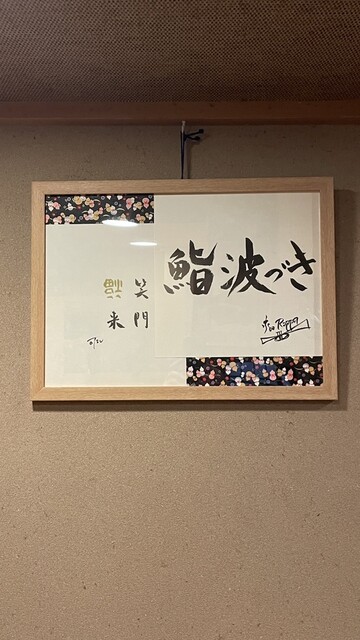 鮨波づき
笑門
福来